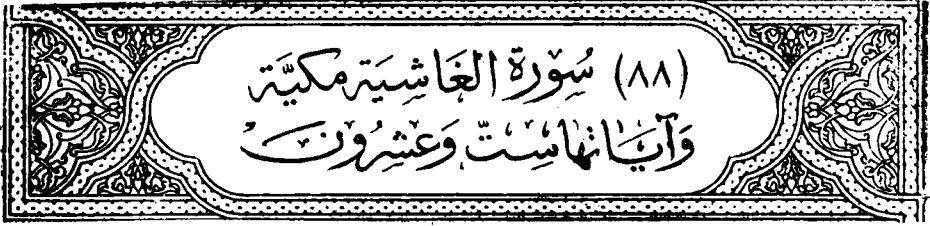 (٨٨) سُورَة الغَاشِيَة مكيَّة
وَآيَاتهَا سِتّ وَعشرُونَ